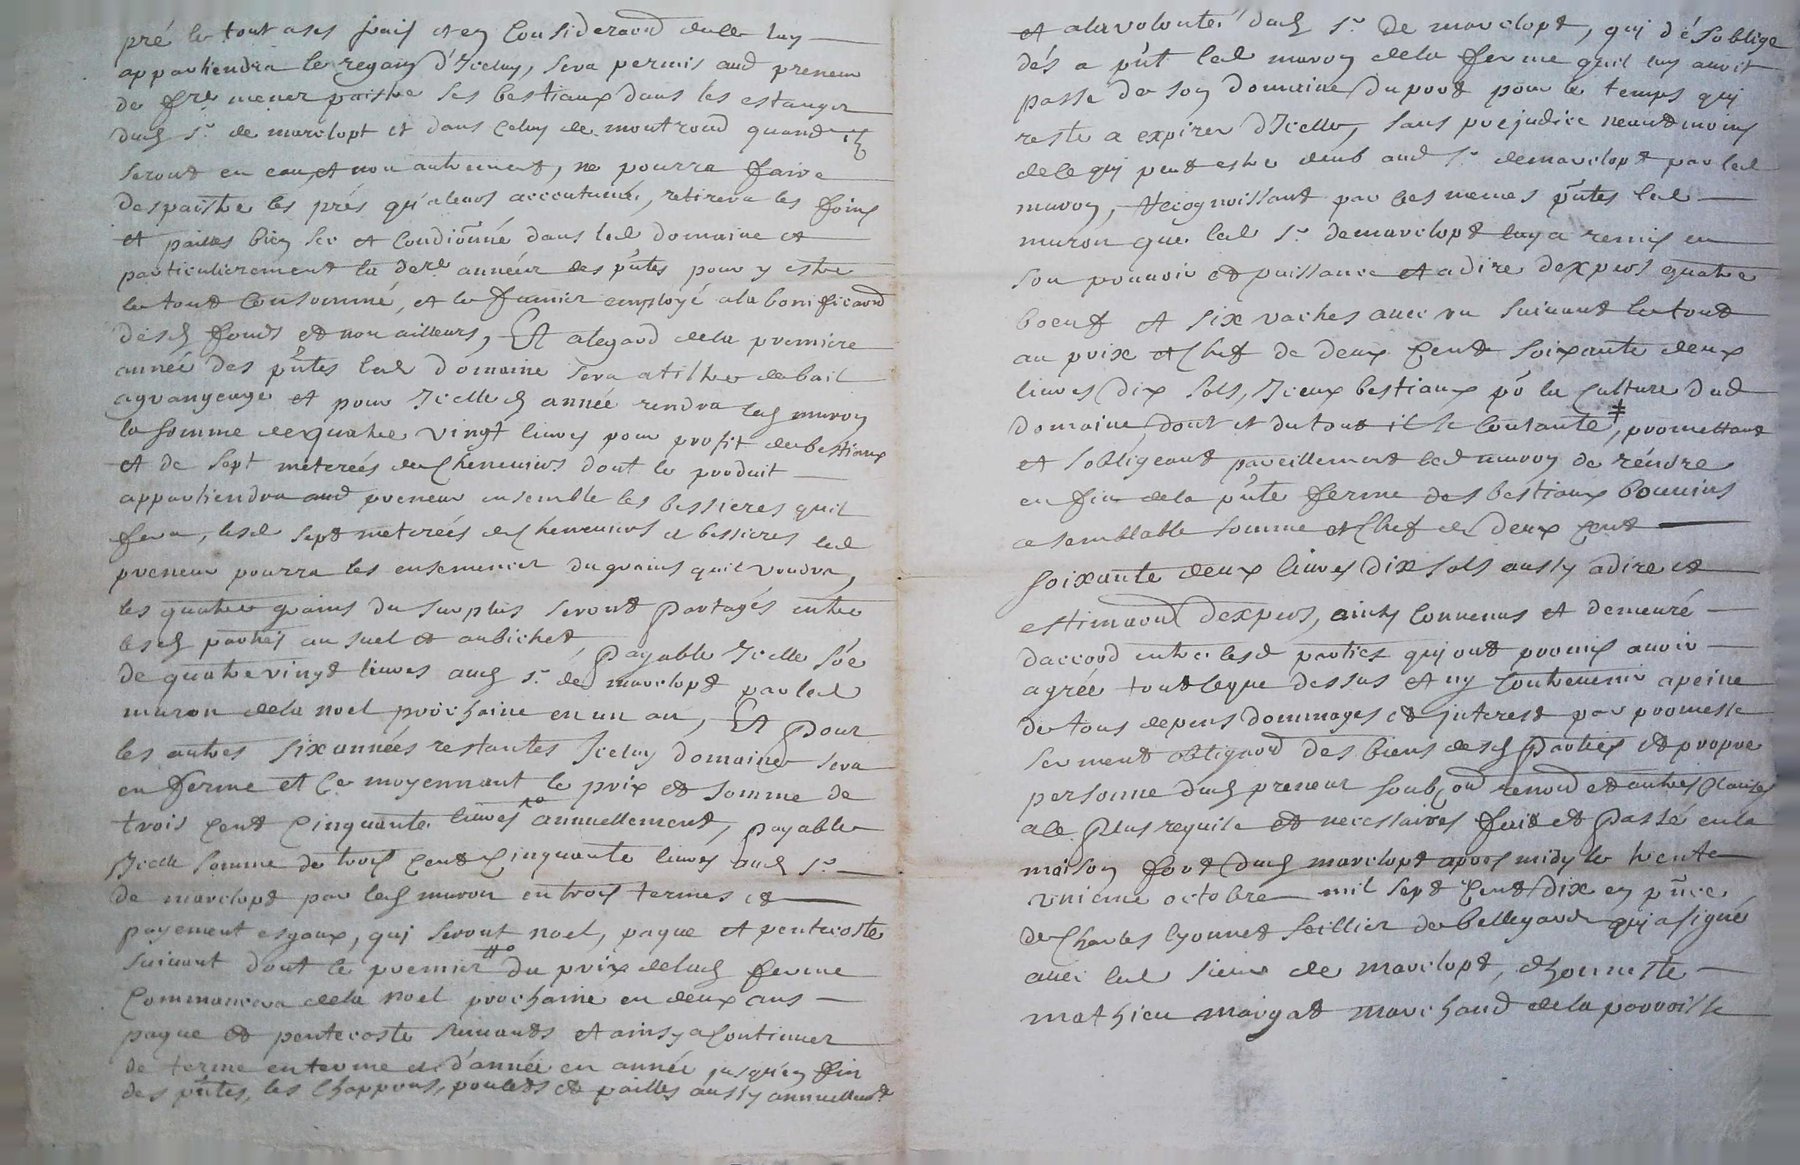 pré le tout a ses frais et en Consideraõn de ce luy
appartiendra le regain d'Iceluy, sera permis aud preneur
de fre mener paistre ses bestiaux dans les estangs
dud Sr. de marclopt et dans celuy de montrond quand ils
seront en eau, et non autrement, ne pourra faire
despaistre les prés qu'a leurs accoutumé, retirera les foins
et pailles bien sec et Condiõnné dans led domaine et
particulierement la dere. année des p̃ntes pour y estre
le tout Consommé, et le fumier employé a la bonificaõn
desd fonds et non ailleurs, Et a legard de la premiere
année des p̃ntes led domaine sera a tiltre de bail
a grangeage et pour Icelle d année rendra led muron
la somme de quatre vingt livres pour profit de bestiaux
et de sept meterées de Cheneviers dont le produit
appartiendra aud preneur ensemble les bessieres quil
fera, lesd sept meterées de Cheneviers et bessieres led
preneur pourra les ensemencer du grains quil voudra,
les quatre grains du surplus seront partagés entre
lesd parties au suel et au bichet,
payable Icelle sõe
de quatre vingt livres aud Sr. de marclopt par led
muron de la noel prochaine en un an, Et pour
les autres six années restantes Iceluy domaine sera
en ferme et ce moyennant le prix et somme de
trois cent cinquante livres annuellement, payable
Icelle somme de trois cent cinquante livres aud Sr.
de marclopt par led muron en trois termes et
payement esgaux, qui seront noel, paque et pentecoste
suivant dont le premier du prix de lad ferme
Commancera de la noel prochaine en deux ans
paque et pentecoste suivants et ainsy a Continuer
de terme en terme et d'année en année jusqu'en fin
des p̃ntes, les Chappons, poulets et pailles aussy annuellemt
et a la volonté dud Sr. de marclopt, qui dés oblige
dés a p̃nt led muron de la ferme quil luy avoit
passé de son domaine du port pour le temps qui
reste a expirer d'Icelle, sans prejudice neantmoins
de ce qui peut estre deub aud Sr. de marclopt par led
muron, Recognoissant par ces memes p̃ntes led
muron que led Sr. de marclopt luy a remis en
son pouvoir et puissance et a dire d'expers quatre
boeuf et six vaches avec un suivant le tout
au prix et Chef de deux cent soixante deux
livres dix sols, Iceux bestiaux po la Culture dud
domaine, dont et du tout il se Contante ‡, promettant
et sobligeant pareillement led muron de réndre
en fin de la p̃nte ferme des bestiaux bouvins
a semblable somme et Chef de deux cent
soixante deux livres dix sols aussy a dire et
estimaõn dexpers, ainsy Convenus et demeuré
daccord entre lesd parties qui ont promis avoir
agrée tout ce que dessus et ny Contrevenir a peine
de tous depens dommages et interest par promesse
serment obligaõn des biens desd Parties et propre
personne dud preneur soubz on renonõ et autres Clauses
a ce plus requise et necessaires fait et Passé en la
maison fort dud marclopt apres midy le trente
unieme octobre mil sept cent dix en p̃nce
de Charles lyonnet seillier de bellegarde qui a signé
avec led sieur de marclopt, et honneste
mathieu maigat marchand de la parroisse